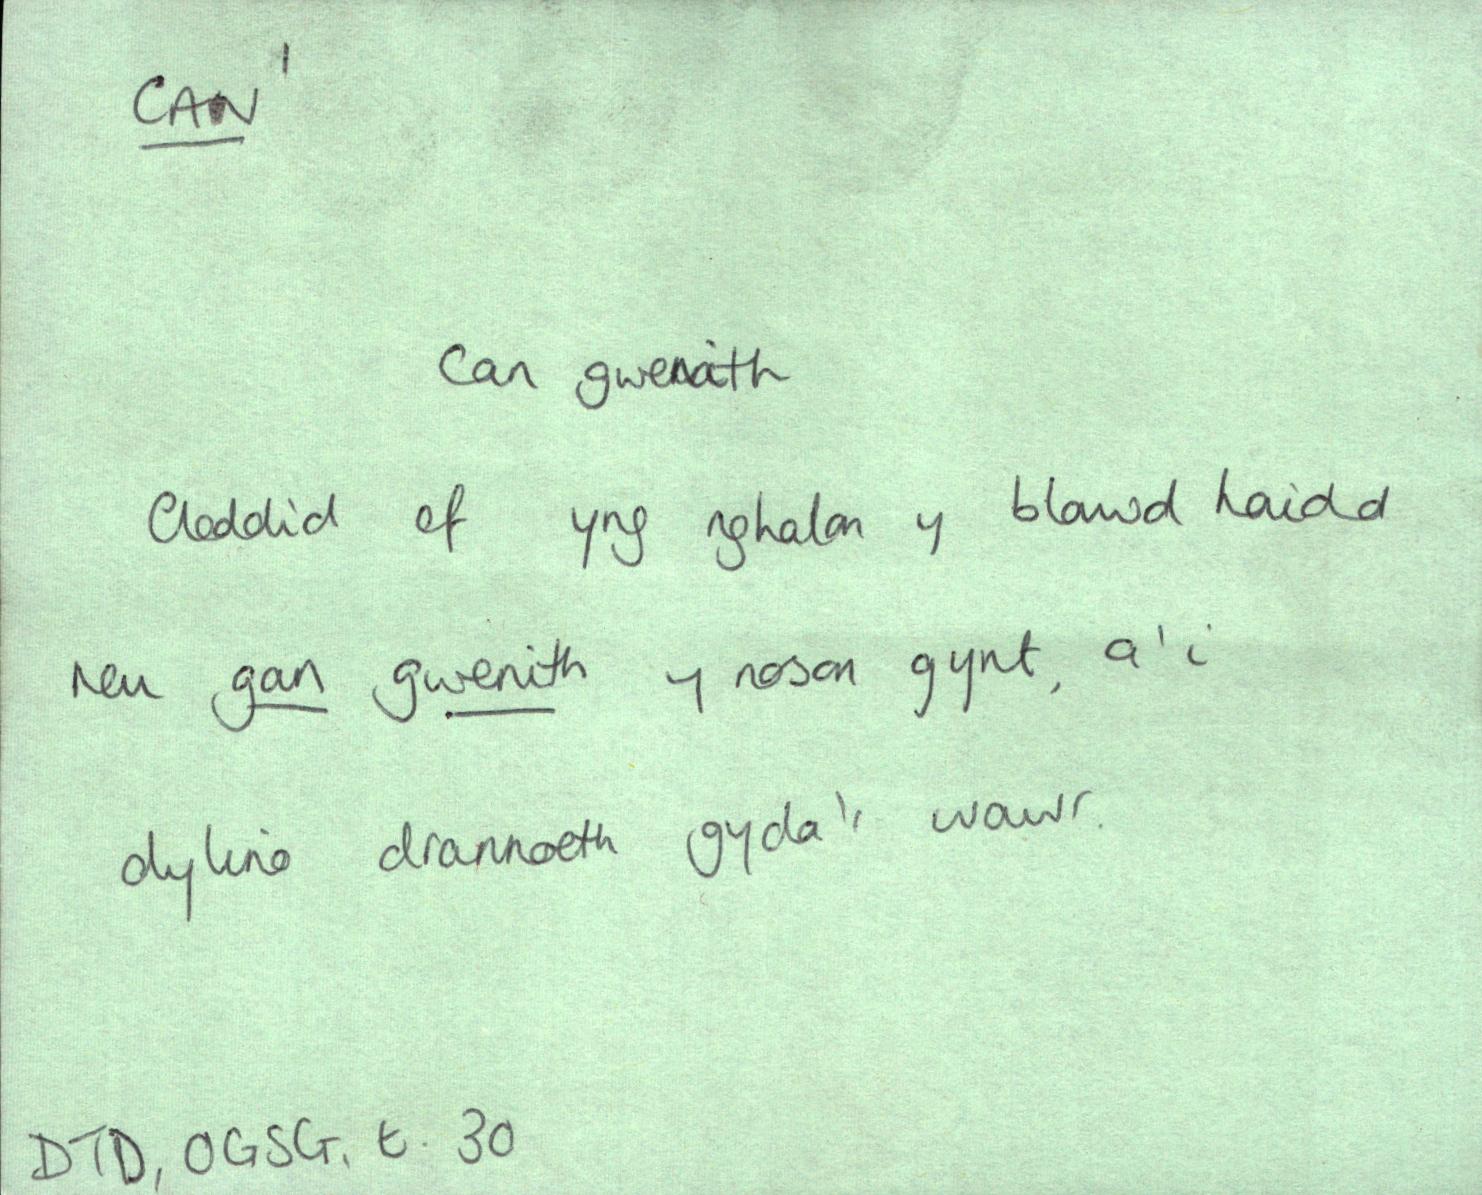 CAN¹
Can gwenith
Cleddid ef yng nghalon y blawd haidd
neu gan gwenith y noson gynt, a'i
dylino drannoeth gyda'r wawr.
DTD, OGSG, t. 30